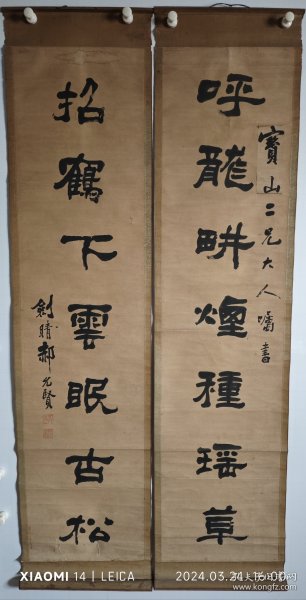 寶山二兄大人囑書
呼龍畊煙種瑶草
招鶴下雲眠古松
劍晴郝允賢
XIAOMI 14 | LEICA
2024.03.24 16:00
www.kongfz.com